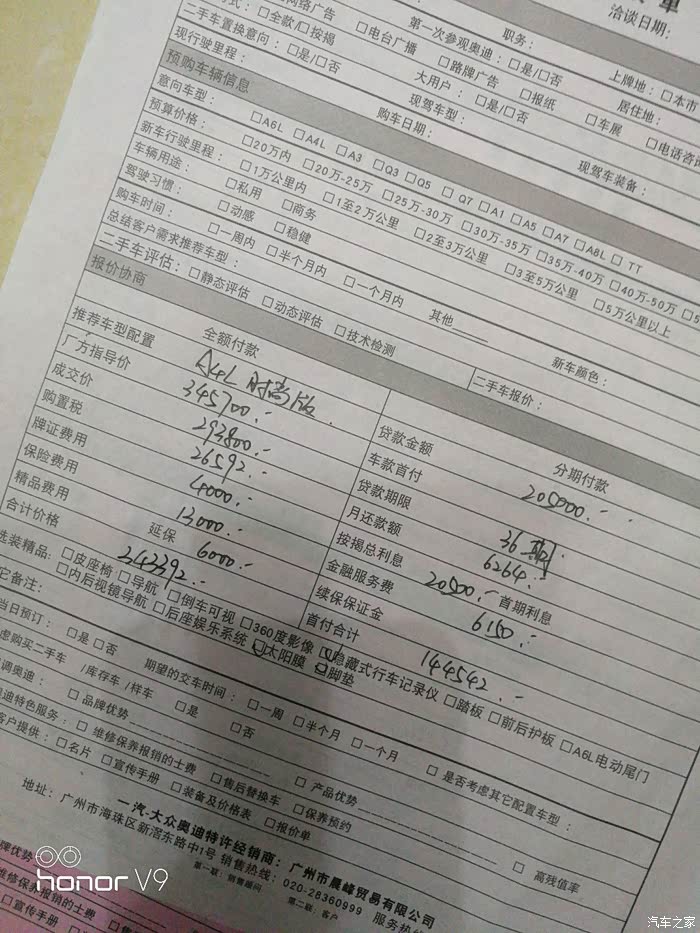 单
洽谈日期：
网络广告
职务：
□全款/□按揭
□电台广播
第一次参观奥迪：□是/□否
上牌地：□本
二手车置换意向：□是/□否
□路牌广告
□报纸
居住地：
现行驶里程：
大用户：□是/□否
□车展
□电话咨
预购车辆信息
购车日期：
现驾车型：
现驾车装备：
意向车型：
□A6L □A4L □A3 □Q3 □Q5 □Q7 □A1 □A5 □A7 □A8L □TT
预算价格：
□20万内 □20万-25万 □25万-30万 □30万-35万 □35万-40万 □40万-50万
新车行驶里程：
□1万公里内 □1至2万公里 □2至3万公里 □3至5万公里 □5万公里以上
车辆用途：
□私用 □商务
驾驶习惯：
□动感 □稳健
购车时间：
□一周内 □半个月内 □一个月内 其他
总结客户需求推荐车型：
新车颜色：
二手车评估：□静态评估 □动态评估 □技术检测
二手车报价：
报价协商
全额付款
分期付款
推荐车型配置 A4L 时尚版
贷款金额 205000.-
厂方指导价 345700.-
车款首付
成交价 293800.-
贷款期限 36期
购置税 26592.-
月还款额 6264.-
牌证费用 4000.-
按揭总利息 20500.- 首期利息
保险费用 13000.-
金融服务费 6150.-
精品费用 延保 6000.-
续保保证金
合计价格 343392.-
首付合计 144542.-
选装精品：□皮座椅 □导航 □倒车可视 □360度影像 □隐藏式行车记录仪 □踏板 □前后护板 □A6L电动尾门
□内后视镜导航 □后座娱乐系统 □太阳膜 □脚垫
它备注：
当日预订：□是 □否 期望的交车时间：□一周 □半个月 □一个月 □是否考虑其它配置车型：
虑购买二手车/库存车/样车 □是 □否
调奥迪：□品牌优势 □产品优势 □高残值率
奥迪特色服务：□维修保养报销的士费 □售后替换车 □保养预约
客户提供：□名片 □宣传手册 □装备及价格表 □报价单
一汽-大众奥迪特许经销商：广州市晨峰贸易有限公司
地址：广州市海珠区新滘东路中1号 销售热线：020-28360999 服务热
第一联：销售顾问 第二联：客户
品牌优势
维修保养报销的士费
□宣传手册
honor V9
汽车之家